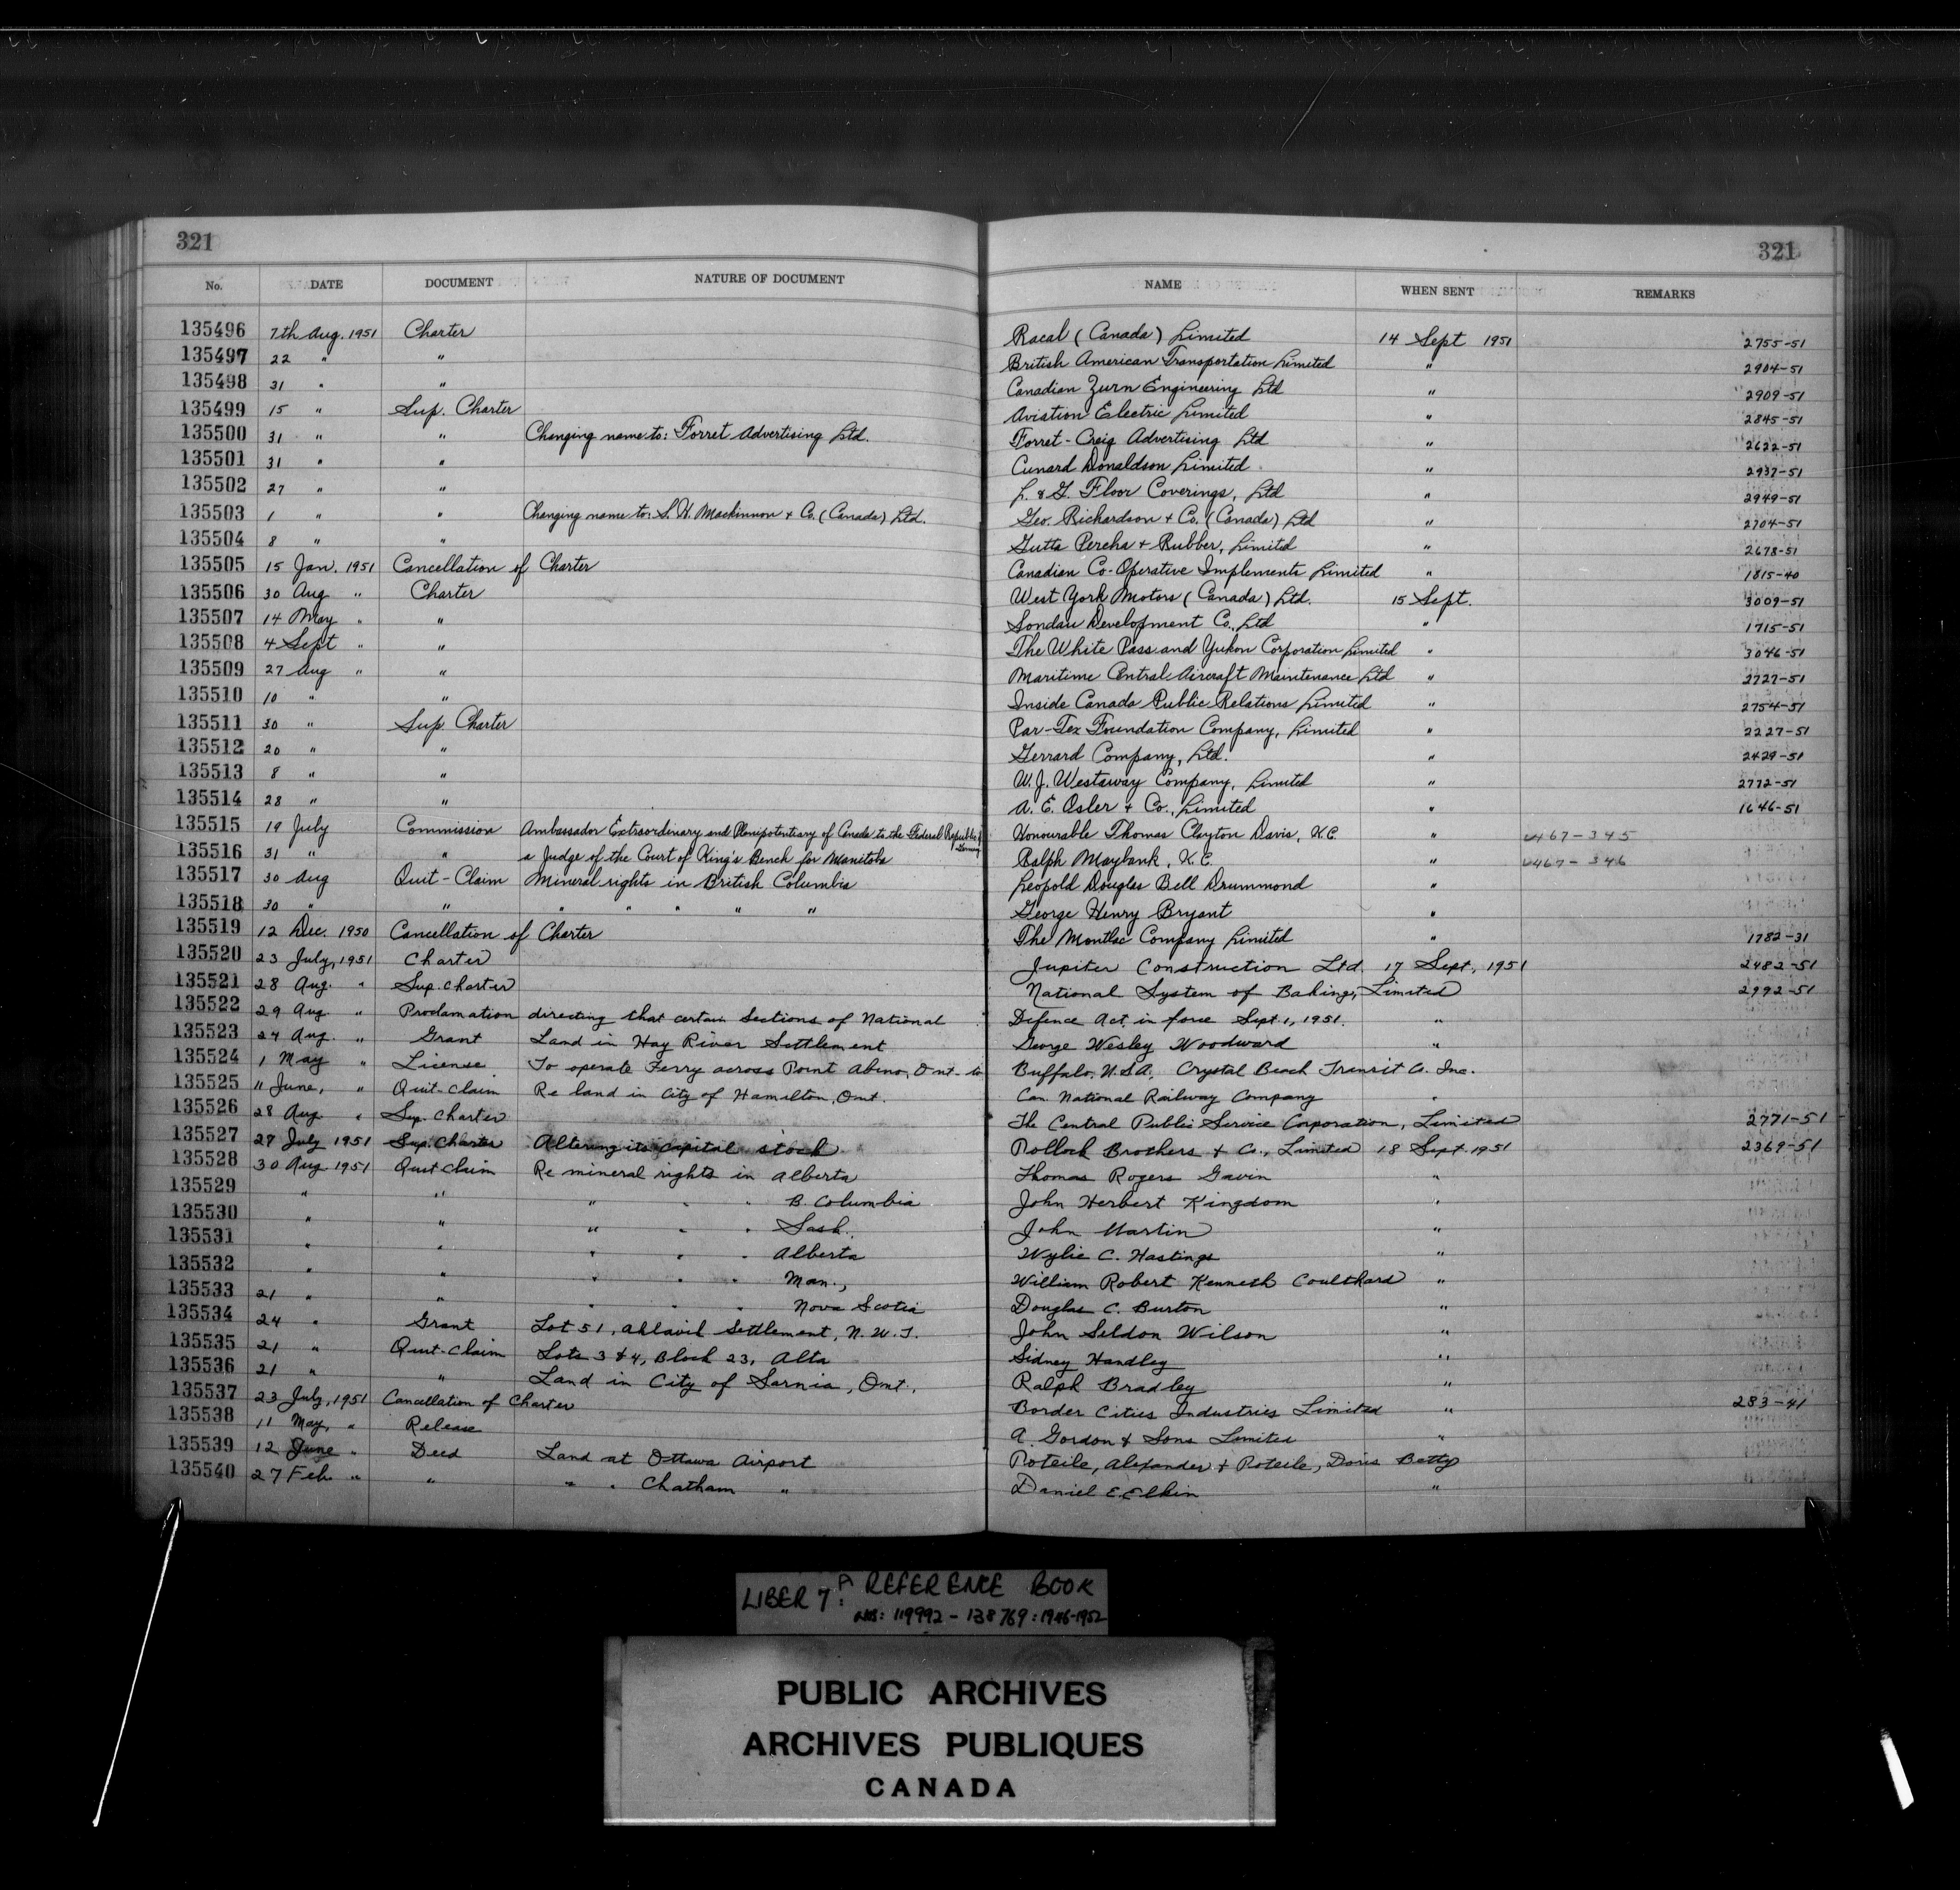 321 321
No. DATE DOCUMENT NATURE OF DOCUMENT NAME WHEN SENT REMARKS
135496 7th Aug. 1951 Charter Racal (Canada) Limited 14 Sept 1951 2755-51
135497 22 " " British American Transportation Limited " 2904-51
135498 31 " " Canadian Zurn Engineering Ltd " 2909-51
135499 15 " Sup. Charter Aviation Electric Limited " 2845-51
135500 31 " " Changing name to: Forret Advertising Ltd. Forret-Creig Advertising Ltd " 2622-51
135501 31 " " Cunard Donaldson Limited " 2937-51
135502 27 " " L. & G. Floor Coverings, Ltd " 2949-51
135503 1 " " Changing name to: S. H. Mackinnon & Co. (Canada) Ltd. Geo. Richardson & Co. (Canada) Ltd " 2704-51
135504 8 " " Gutta Percha & Rubber, Limited " 2678-51
135505 15 Jan. 1951 Cancellation of Charter Canadian Co-Operative Implements Limited " 1815-40
135506 30 Aug " Charter West York Motors (Canada) Ltd. 15 Sept. 3009-51
135507 14 May " " Sondau Development Co., Ltd " 1715-51
135508 4 Sept " " The White Pass and Yukon Corporation Limited " 3046-51
135509 27 Aug " " Maritime Central Aircraft Maintenance Ltd " 2727-51
135510 10 " " Inside Canada Public Relations Limited " 2754-51
135511 30 " Sup. Charter Par-Tex Foundation Company, Limited " 2227-51
135512 20 " " Gerrard Company, Ltd. " 2429-51
135513 8 " " W. J. Westaway Company, Limited " 2772-51
135514 28 " " A. E. Osler & Co., Limited " 1646-51
135515 19 July Commission Ambassador Extraordinary and Plenipotentiary of Canada to the Federal Republic of Germany Honourable Thomas Clayton Davis, K.C. " 467-345
135516 31 " " a Judge of the Court of King's Bench for Manitoba Ralph Maybank, K.C. " 467-346
135517 30 Aug Quit-Claim Mineral rights in British Columbia Leopold Douglas Bell Drummond "
135518 30 " " " " " " " George Henry Bryant "
135519 12 Dec. 1950 Cancellation of Charter The Montlac Company Limited " 1782-31
135520 23 July, 1951 Charter Jupiter Construction Ltd. 17 Sept, 1951 2482-51
135521 28 Aug. " Sup. charter National System of Baking, Limited 2992-51
135522 29 Aug " Proclamation directing that certain Sections of National Defence Act in force Sept. 1, 1951. "
135523 24 Aug. " Grant Land in Hay River Settlement George Wesley Woodward "
135524 1 May " License To operate Ferry across Point Abino, Ont. to Buffalo, U.S.A. Crystal Beach Transit Co. Inc.
135525 11 June, " Quit-claim Re land in City of Hamilton, Ont. Can. National Railway Company "
135526 28 Aug " Sup. Charter The Central Public Service Corporation, Limited 2771-51
135527 27 July 1951 Sup. Charter Altering its capital stock Pollock Brothers & Co., Limited 18 Sept. 1951 2369-51
135528 30 Aug 1951 Quit claim Re mineral rights in Alberta Thomas Rogers Gavin "
135529 " " " " " B. Columbia John Herbert Kingdom "
135530 " " " " " Sask. John Martin "
135531 " " " " " Alberta Wylie C. Hastings "
135532 " " " " " Man., William Robert Kenneth Coulthard "
135533 21 " " " " " Nova Scotia Douglas C. Burton "
135534 24 " Grant Lot 51, Aklavik Settlement, N.W.T. John Seldon Wilson "
135535 21 " Quit-claim Lots 3 & 4, Block 23, Alta Sidney Handley "
135536 21 " " Land in City of Sarnia, Ont., Ralph Bradley "
135537 23 July, 1951 Cancellation of Charter Border Cities Industries Limited " 283-41
135538 11 May, " Release A. Gordon & Sons Limited "
135539 12 June " Deed Land at Ottawa Airport Poteile, Alexander & Poteile, Doris Betty
135540 27 Feb. " " " " Chatham " Daniel E. Elkin "
LIBER 7A: REFERENCE BOOK
NOS: 119992 - 138769: 1946-1952
PUBLIC ARCHIVES
ARCHIVES PUBLIQUES
CANADA